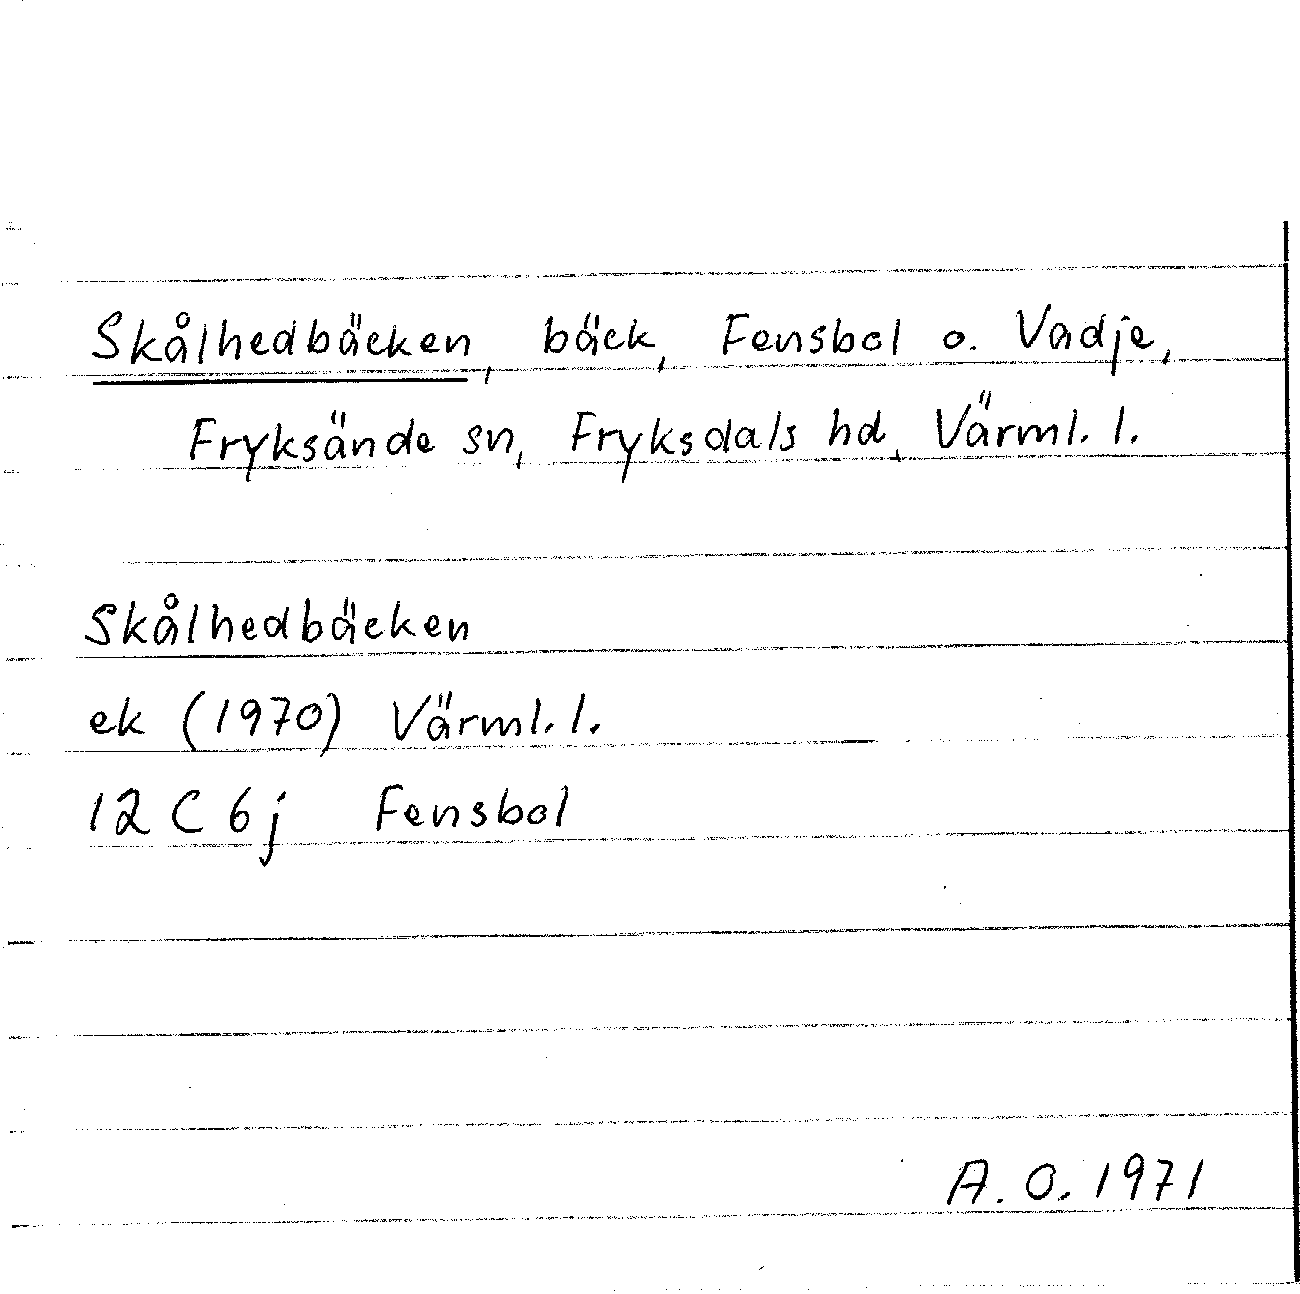 Skålhedbäcken, bäck, Fensbol o. Vadje,
Fryksände sn, Fryksdals hd, Värml. l.
Skålhedbäcken
ek (1970) Värml. l.
12 C 6j Fensbol
A. O. 1971